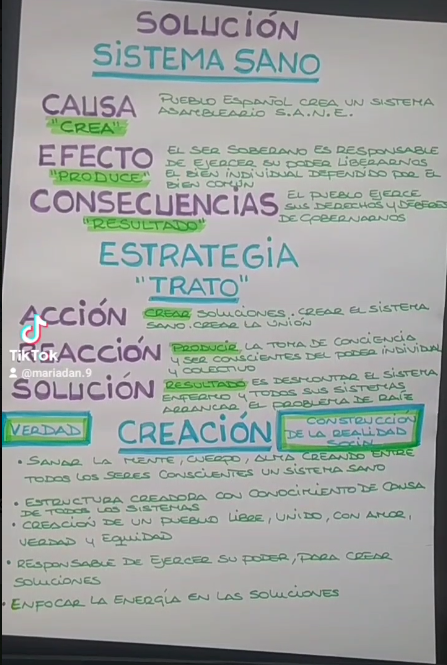 SOLUCIÓN
SISTEMA SANO
CAUSA
"CREA"
PUEBLO ESPAÑOL CREA UN SISTEMA
ASAMBLEARIO S.A.N.E.
EFECTO
"PRODUCE"
EL SER SOBERANO ES RESPONSABLE
DE EJERCER SU PODER LIBERARNOS
EL BIEN INDIVIDUAL DEFENDIDO POR EL
BIEN COMÚN
CONSECUENCIAS
"RESULTADO"
EL PUEBLO EJERCE
SUS DERECHOS Y DEBERES
DE GOBERNARNOS
ESTRATEGIA
"TRATO"
ACCIÓN
CREAR SOLUCIONES. CREAR EL SISTEMA
SANO. CREAR LA UNIÓN
REACCIÓN
PRODUCIR LA TOMA DE CONCIENCIA
Y SER CONSCIENTES DEL PODER INDIVIDUAL
Y COLECTIVO
SOLUCIÓN
RESULTADO ES DESMONTAR EL SISTEMA
ENFERMO Y TODOS SUS SISTEMAS
ARRANCAR EL PROBLEMA DE RAÍZ
TikTok
@mariadan.9
VERDAD
CREACIÓN
CONSTRUCCIÓN
DE LA REALIDAD
• SANAR LA MENTE, CUERPO, ALMA CREANDO ENTRE
TODOS LOS SERES CONSCIENTES UN SISTEMA SANO
• ESTRUCTURA CREADORA CON CONOCIMIENTO DE CAUSA
DE TODOS LOS SISTEMAS
• CREACIÓN DE UN PUEBLO LIBRE, UNIDO, CON AMOR,
VERDAD Y EQUIDAD
• RESPONSABLE DE EJERCER SU PODER, PARA CREAR
SOLUCIONES
• ENFOCAR LA ENERGÍA EN LAS SOLUCIONES